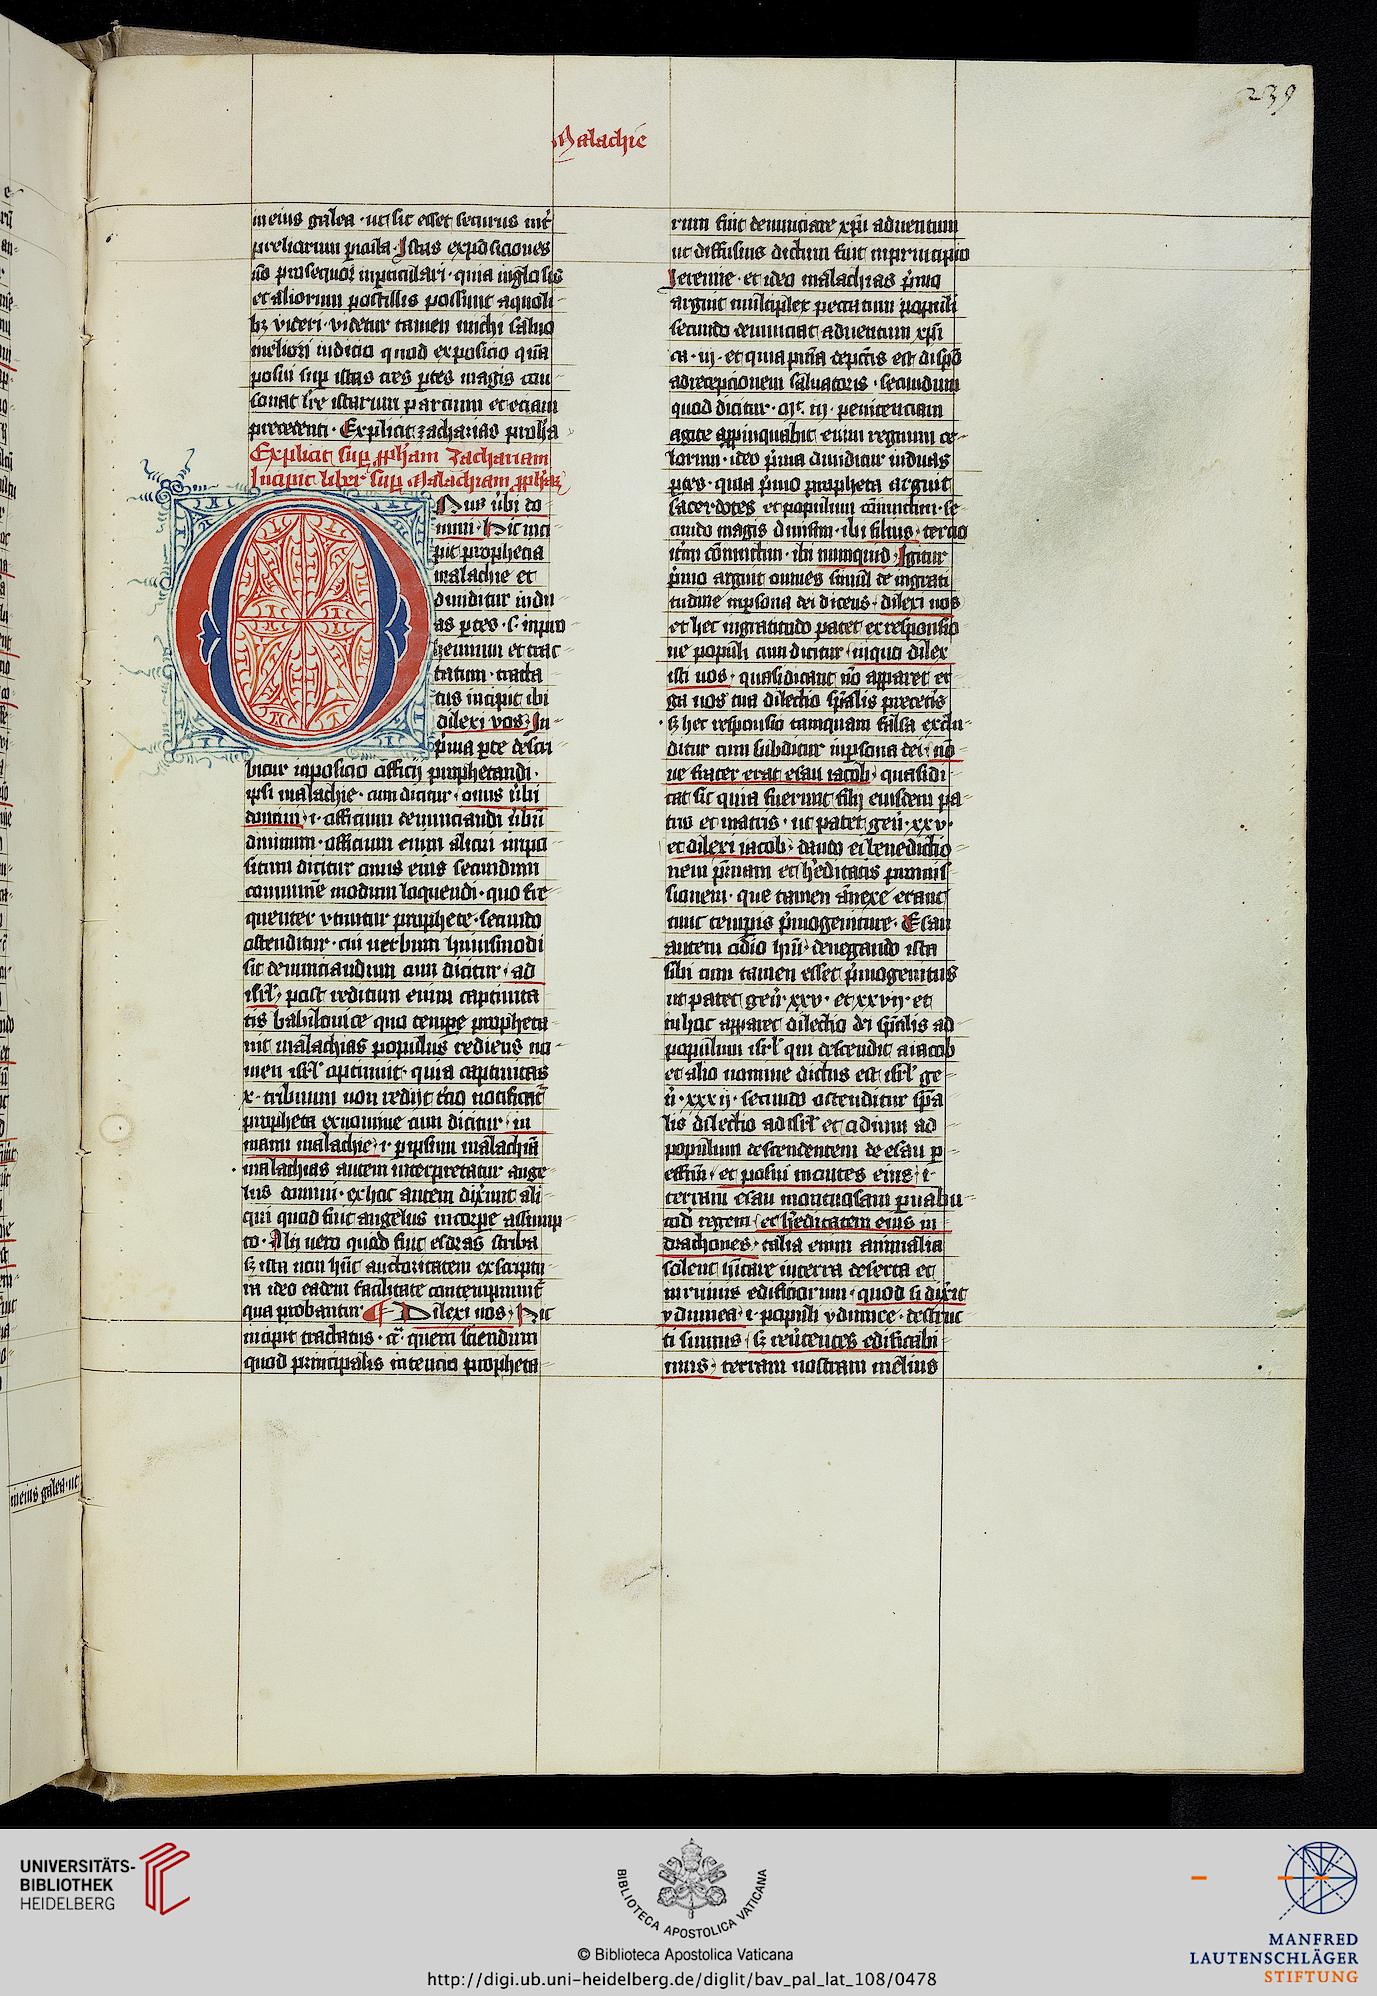 239
Malachie
in eius galea · ut sic esset securus int̄
preliorum picula · Istas exposiciones
nō prosequor in particulari · quia in glosis
et aliorum postillis possunt a quoli
bꝫ videri · videtur tamen michi saluo
meliori iudicio quod exposicio quā
posui sup̄ istas tres ꝑtes magis con
sonat lr̄e istarum parcium et eciam
precedenti · Explicit zacharias proph̄a
Explicit sup̄ ꝓph̄am Zachariam
Incipit liber sup̄ Malachiam ꝓph̄aꝫ
Onus ūbi do
mini · Hic inci
pit prophecia
malachie et
diuiditur in du
as ꝑtes · s · in pro
hemium et trac
tatum · tracta
tus incipit ibi
dilexi vos · In
p̄ma ꝑte descri
bitur inposicio officij prophetandi ·
ipsi malachie · cum dicitur · onus ūbi
domini · i · officium denunciandi ūbū
diuinum · officium enim alicui inpo
situm dicitur onus eius secundum
communē modum loquendi · quo fre
quenter vtuntur prophete · secundo
ostenditur · cui uerbum huiusmodi
sit denunciandum cum dicitur · ad
isrl̄ · post reditum enim captiuita
tis babilonice quo tempe propheta
uit malachias populus rediens no
men isrl̄ optinuit · quia captiuitas
x · tribuum non redijt t̄cio notificat̄
propheta ex nomine cum dicitur · in
manu malachie · i · ꝑ ipsum malachiā
malachias autem interpretatur ange
lus domini · ex hoc autem dix̄unt ali
qui quod fuit angelus in corpe assump
to · Alij uero quod fuit esdras scriba
sꝫ ista non hn̄t auctoritatem ex scriptu
ra ideo eadem facilitate contempnunt̄
qua probantur ¶ Dilexi uos · Hic
incipit tractatus · c̄a · quem sciendum
quod principalis intencio propheta
rum fuit denunciare xp̄i aduentum
ut diffusius dictum fuit in principio
Jeremie · et ideo malachias p̄mo
arguit multiplex peccatum populi
secundo denunciat aduentum xp̄i
ca · iij · et quia pn̄ia de pc̄tis est disp̄o
ad recepcionem saluatoris · secundum
quod dicitur · mt̄ · iij · penitenciam
agite appinquabit enim regnum ce
lorum · ideo p̄ma diuiditur in duas
ꝑtes · quia p̄mo propheta arguit
sacerdotes et populum cōiunctim · se
cundo magis diuisim · ibi filius · tercio
itm̄ cōiunctim · ibi numquid · Igitur
p̄mo arguit omnes simul de ingrati
tudine in ꝑsona dei dicens · dilexi uos
et hec ingratitudo patet ex responsio
ne populi cum dicitur · in quo dilex
isti nos · quasi dicant nō apparet er
ga nos tua dilectio sp̄alis pre cet̄is
sꝫ hec responsio tamquam falsa exclu
ditur cum subditur in ꝑsona dei · nō
ne frater erat esau iacob · quasi di
cat sic quia fuerunt filij eiusdem pa
tris et matris · ut patet gen̄ · xxv ·
et dilexi iacob · dando ei benedictio
nem p̄mam et h̄editatis promis
sionem · que tamen ānexe erant
tunc temporis p̄mogeniture · Esau
autem odio hūi · denegando ista
sibi cum tamen esset p̄mogenitus
ut patet gen̄ · xxv · et xxvij · et
in hoc apparet dilectio dei sp̄alis ad
populum isrl̄ qui descendit a iacob
et alio nomine dictus est isrl̄ ge
n̄ · xxxij · secundo ostenditur sp̄a
lis dilectio ad isrl̄ et odium ad
populum descendentem de esau ꝑ
effc̄m · et posui montes eius · i ·
terram esau montuosam ꝑ nabu
cod̄ regem · et h̄editatem eius in
drachones · talia enim animalia
solent h̄itare in terra deserta et
in ruinis edificiorum · quod si dix̄it
ydumea · i · populi ydumee · destruc
ti sumus · sꝫ reūtentes edificabi
mus · terram nostram melius
in eius galea · ut
UNIVERSITÄTS-
BIBLIOTHEK
HEIDELBERG
BIBLIOTECA APOSTOLICA VATICANA
© Biblioteca Apostolica Vaticana
http://digi.ub.uni-heidelberg.de/diglit/bav_pal_lat_108/0478
MANFRED
LAUTENSCHLÄGER
STIFTUNG